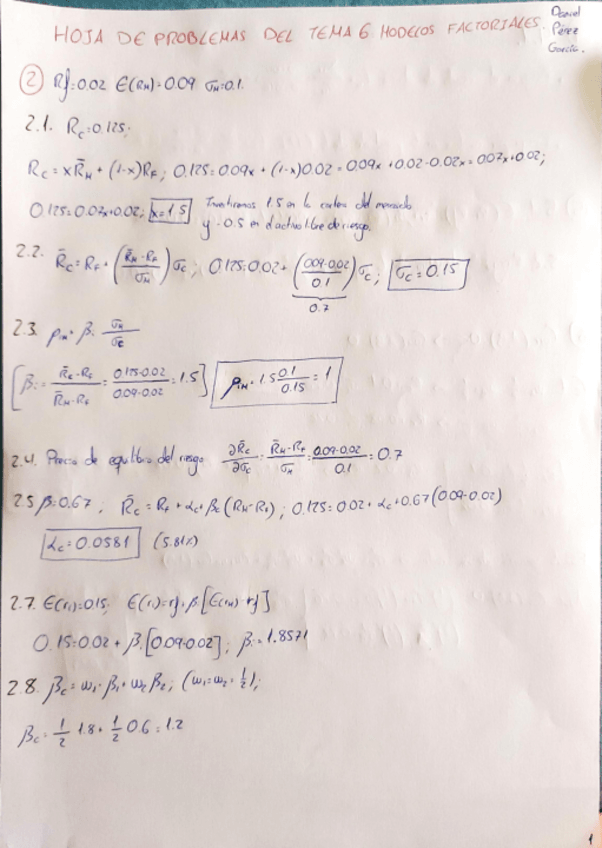 HOJA DE PROBLEMAS DEL TEMA 6 MODELOS FACTORIALES.
Daniel
Pérez
García.
② Rf=0.02 E(RM)=0.09 σM=0.1.
2.1. RC=0.125;
RC = xR̄M + (1-x)RF; 0.125=0.09x + (1-x)0.02 = 0.09x + 0.02-0.02x = 007x+0.02;
0.125=0.07x+0.02; x=1.5 Invertiremos 1.5 en la cartera del mercado
y -0.5 en el activo libre de riesgo.
2.2. R̄C = RF + (R̄M-RF/σM)σC; 0.125=0.02+ (0.09-0.02/0.1)σC; σC=0.15
0.7
2.3. ρiM = βi σM/σC
[βi = R̄C-RF/R̄M-RF = 0.125-0.02/0.09-0.02 = 1.5] ρiM = 1.5 0.1/0.15 = 1
2.4. Precio de equilibrio del riesgo ∂R̄C/∂σC = R̄M-RF/σM = 0.09-0.02/0.1 = 0.7
2.5 β=0.67; R̄C = RF + αC + βC(RM-RF); 0.125=0.02+ αC+0.67(0.09-0.02)
αC=0.0581 (5.81%)
2.7. E(ri)=0.15; E(ri)=rf+βi[E(rM)-rf]
0.15=0.02+βi[0.09-0.02]; βi=1.8571
2.8. βC=ω1·β1+ω2β2; (ω1=ω2=1/2);
βC=1/2 1.8+1/2 0.6=1.2
1